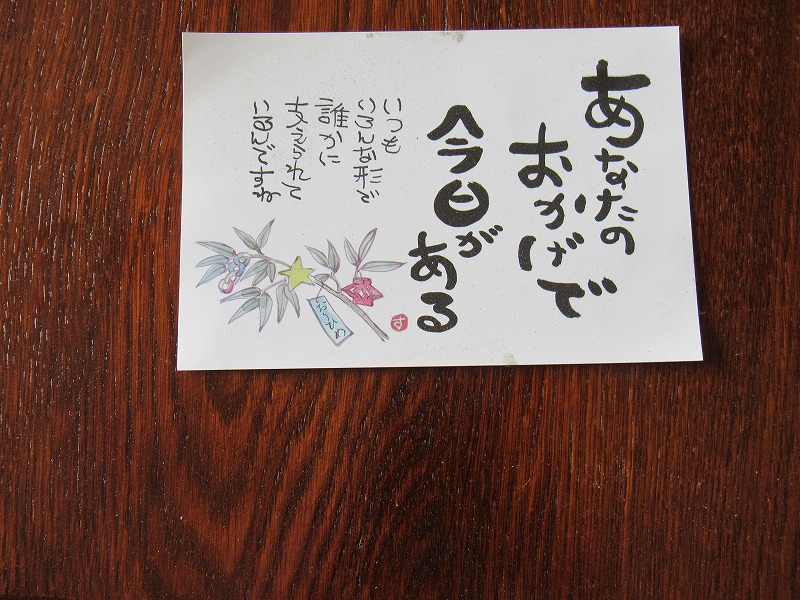 あなたの
おかげで
今日がある
いつも
いろんな形で
誰かに
支えられて
いるんですね
おりひめ
す